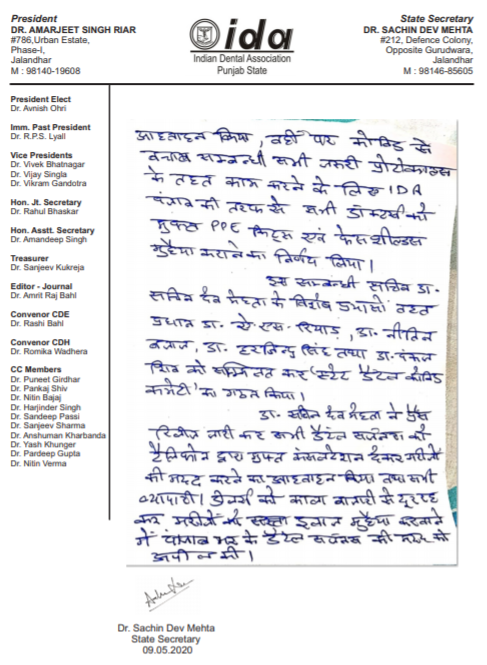 President
DR. AMARJEET SINGH RIAR
#786,Urban Estate,
Phase-I,
Jalandhar
M : 98140-19608
ida
Indian Dental Association
Punjab State
State Secretary
DR. SACHIN DEV MEHTA
#212, Defence Colony,
Opposite Gurudwara,
Jalandhar
M : 98146-85605
President Elect
Dr. Avnish Ohri
Imm. Past President
Dr. R.P.S. Lyall
Vice Presidents
Dr. Vivek Bhatnagar
Dr. Vijay Singla
Dr. Vikram Gandotra
Hon. Jt. Secretary
Dr. Rahul Bhaskar
Hon. Asstt. Secretary
Dr. Amandeep Singh
Treasurer
Dr. Sanjeev Kukreja
Editor - Journal
Dr. Amrit Raj Bahl
Convenor CDE
Dr. Rashi Bahl
Convenor CDH
Dr. Romika Wadhera
CC Members
Dr. Puneet Girdhar
Dr. Pankaj Shiv
Dr. Nitin Bajaj
Dr. Harjinder Singh
Dr. Sandeep Passi
Dr. Sanjeev Sharma
Dr. Anshuman Kharbanda
Dr. Yash Khunger
Dr. Pardeep Gupta
Dr. Nitin Verma
आहवाहन किया, वहीं पर कोविड से
बचाव सम्बन्धी सभी जरुरी प्रोटोकाल्स
के तहत काम करने के लिए IDA
पंजाब की तरफ से सभी डॉक्टर्स को
मुफ्त PPE किट्स एवं फेसशील्डस
मुहैया कराने का निर्णय लिया।
इस सम्बन्धी सचिव डा.
सचिन देव मेहता के विशेष प्रयासों तहत
प्रधान डा. ऐ.एस. रियाड़, डा. नीतिन
बजाज, डा. हरजिन्द्र सिंह तथा डा. पंकज
शिव को सम्मिलित कर 'स्टेट डैंटल कोविड
कमेटी' का गठन किया।
डा. सचिन देव मेहता ने प्रैस
रिलीज जारी कर सभी डैंटल सर्जनस को
टैलिफोन द्वारा मुफ्त कंसलटेशन देकर मरीजों
की मदद करने का आहवाहन किया तथा सभी
व्यापारी। डीलर्स को काला बाजारी से दूर रह
कर मरीजों को सस्ता इलाज मुहैया करवाने
में पंजाब भर के डैंटल सर्जनस की मदद की
अपील की।
Dr. Sachin Dev Mehta
State Secretary
09.05.2020